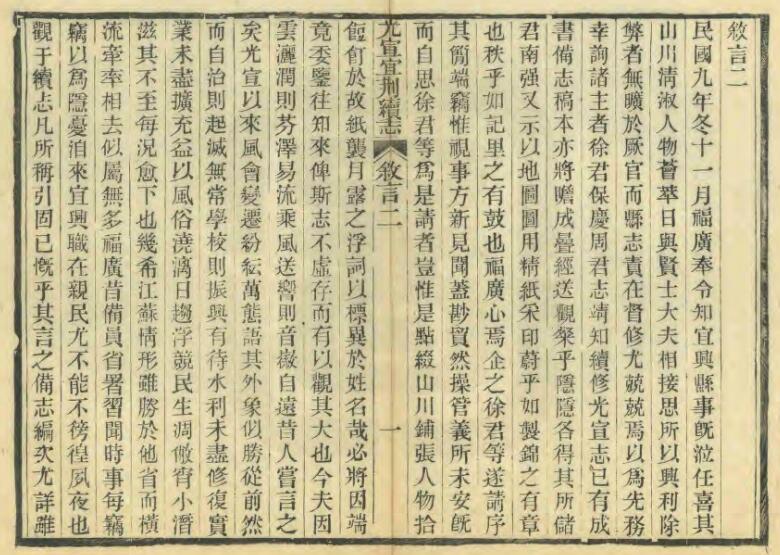 敘言二
民國九年冬十一月福廣奉令知宜興縣事旣涖任喜其
山川淸淑人物薈萃日與賢士大夫相接思所以興利除
弊者無曠於厥官而縣志責在督修尤兢兢焉以爲先務
幸詢諸主者徐君保慶周君志靖知續修光宣志已有成
書備志稿本亦將瞻成曡經送觀粲乎隱隱各得其所儲
君南强又示以地圖圖用精紙采印蔚乎如製錦之有章
也秩乎如記里之有鼓也福廣心焉企之徐君等遂請序
其簡端竊惟視事方新見聞蓋尠貿然操管義所未安旣
而自思徐君等爲是請者豈惟是點綴山川鋪張人物拾
光宣宜荆續志 敘言二 一
餖飣於故紙襲月露之浮詞以標異於姓名哉必將因端
竟委鑒往知來俾斯志不虛存而有以觀其大也今夫因
雲灑潤則芬澤易流乘風送響則音徽自遠昔人嘗言之
矣光宣以來風會變遷紛紜萬態語其外象似勝從前然
而自治則起滅無常學校則振興有待水利未盡修復實
業未盡擴充益以風俗澆漓日趨浮競民生凋儆宵小潛
滋其不至每況愈下也幾希江蘇情形雖勝於他省而橫
流牽率相去似屬無多福廣昔備員省署習聞時事每竊
竊以爲隱憂洎來宜興職在親民尤不能不徬徨夙夜也
觀于續志凡所稱引固已慨乎其言之備志編次尤詳雖